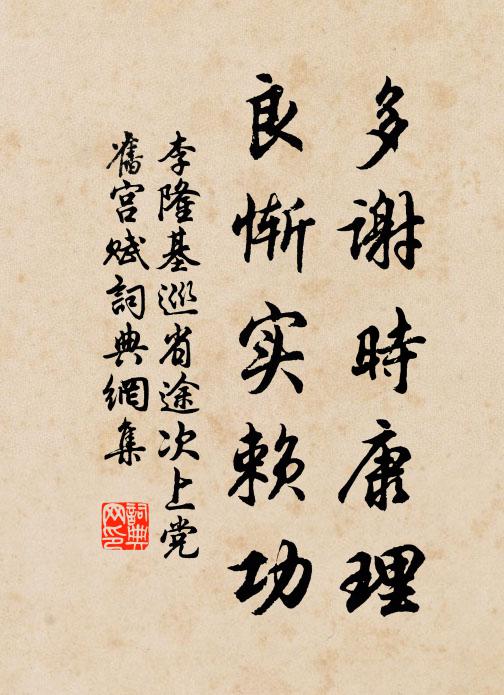 多谢時康理
良惭实赖功
李隆基巡省途次上党
舊宫赋詞典網集
詞典网印